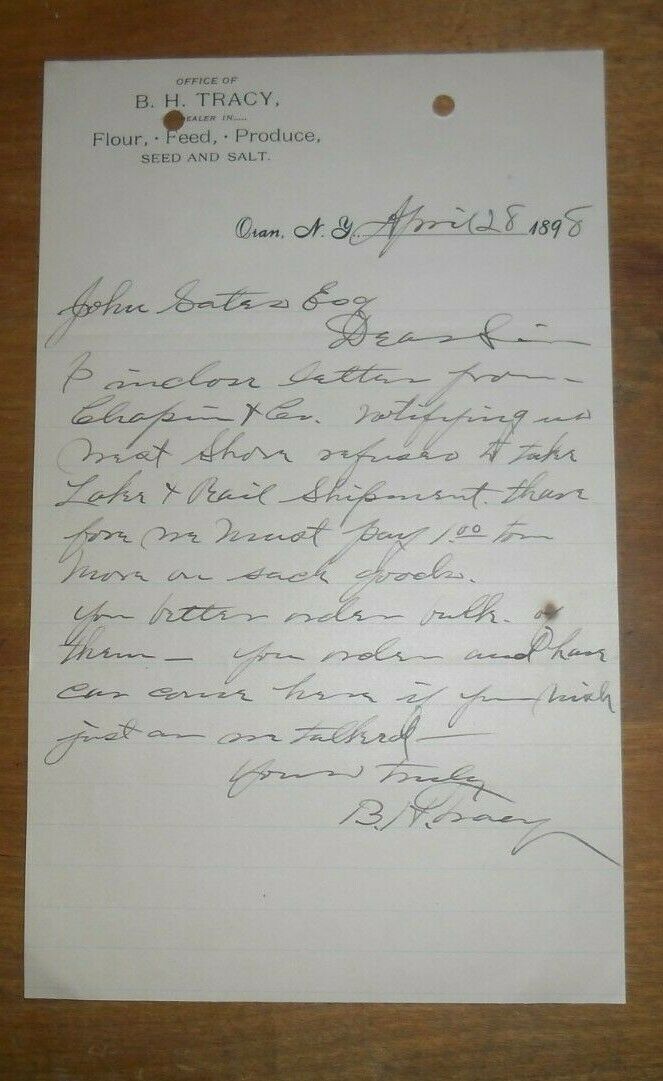 OFFICE OF
B. H. TRACY,
DEALER IN.....
Flour, · Feed, · Produce,
SEED AND SALT.
Oran, N. Y. April 28 1898
John Gates Esq
Dear Sir
I inclose letter from
Chapin & Co. notifying us
West Shore refuses to take
Lake & Rail Shipment. there
fore we must pay 1.00 ton
more on sack goods.
you better order bulk. of
them — you order and have
car come here if you wish
just as we talked —
Yours truly
B. H. Tracy